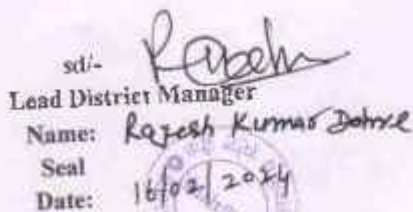 sd/-
Lead District Manager
Name: Rajesh Kumar
Seal
Date: 16/02/2024